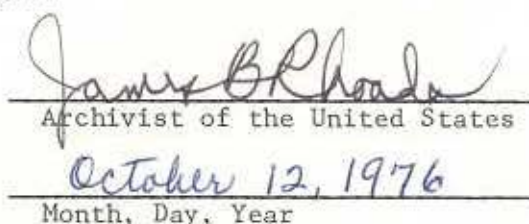 James B Rhoads
Archivist of the United States
October 12, 1976
Month, Day, Year